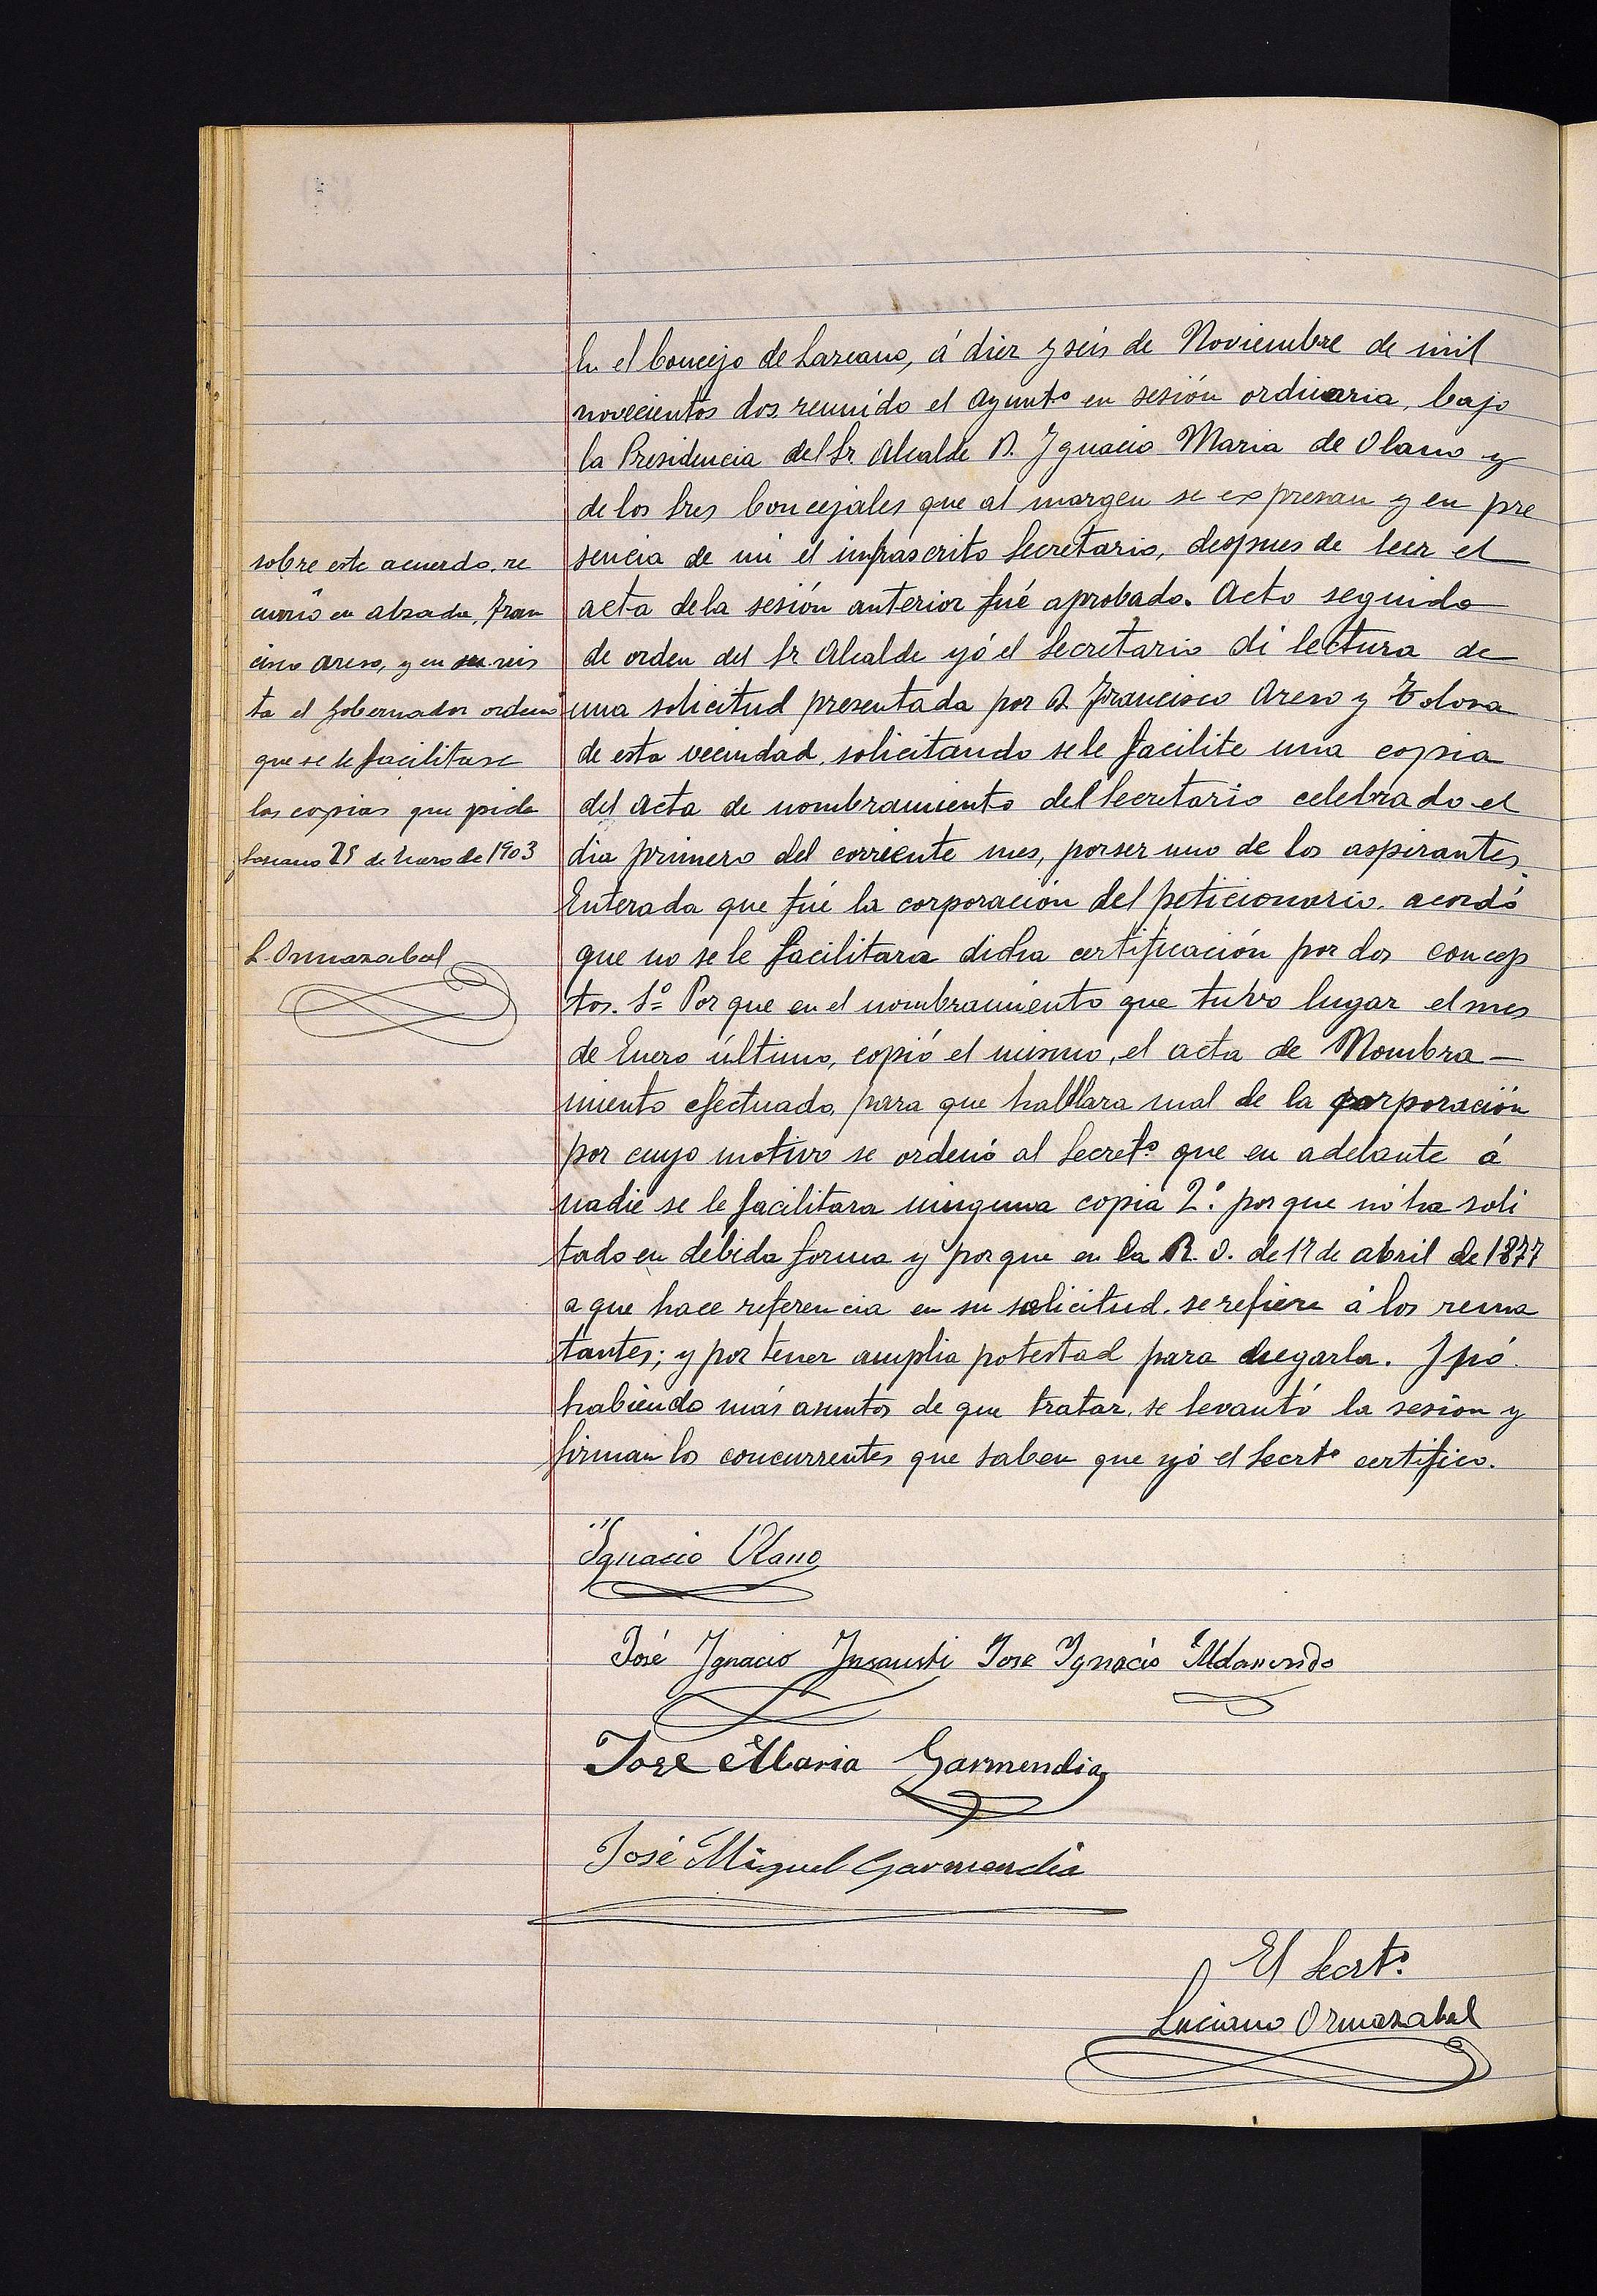 En el Concejo de Lazcano, á diez y seis de Noviembre de mil
novecientos dos reunido el Ayuntº en sesión ordinaria, bajo
la Presidencia del Sr Alcalde D. Ignacio Maria de Olano y
de los Sres Concejales que al margen se expresan y en pre
sencia de mi el infrascrito Secretario, despues de leer el
acta de la sesión anterior fué aprobado. Acto seguido
de orden del Sr Alcalde yó el Secretario di lectura de
una solicitud presentada por D Francisco Areso y Tolosa
de esta vecindad, solicitando se le facilite una copia
del acta de nombramiento del Secretario celebrado el
dia primero del corriente mes, por ser uno de los aspirantes.
Enterada que fué la corporación del peticionario, acordó
que no se le facilitara dicha certificación por dos concep
tos. 1º Por que en el nombramiento que tubo lugar el mes
de Enero último, copió el mismo, el acta de Nombra-
miento efectuado, para que hablara mal de la corporación
por cuyo motivo se ordenó al Secretº que en adelante á
nadie se le facilitara ninguna copia 2º. por que nó ha soli
tado en debida forma y por que en la R. O. de 17 de abril de 1877
a que hace referencia en su solicitud, se refiere á los rema
tantes; y por tener amplia potestad para negarla. Y nó
habiendo más asuntos de que tratar, se levantó la sesión y
firman los concurrentes que saben que yó el Secrtº certifico.
sobre este acuerdo, re
currió en alzada, Fran
cisco Areso, y en su vis
ta el Gobernador ordenó
que se le facilitase
las copias que pide
Lazcano 25 de Enero de 1903
L. Ormazabal
Ignacio Olano
José Ignacio Insausti Jose Ignacio Aldanondo
Jose Maria Garmendia
José Miguel Garmendia
El Secrtº.
Luciano Ormazabal